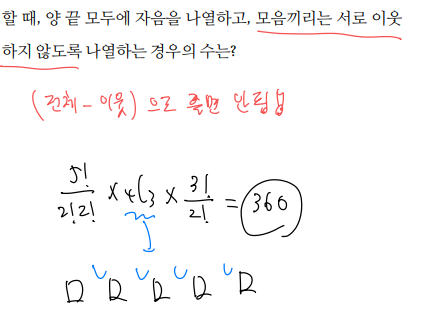 할 때, 양 끝 모두에 자음을 나열하고, 모음끼리는 서로 이웃
하지 않도록 나열하는 경우의 수는?
(전체 - 이웃) 으로 풀면 안됨
5!/2!2! × 4C3 × 3!/2! = 360